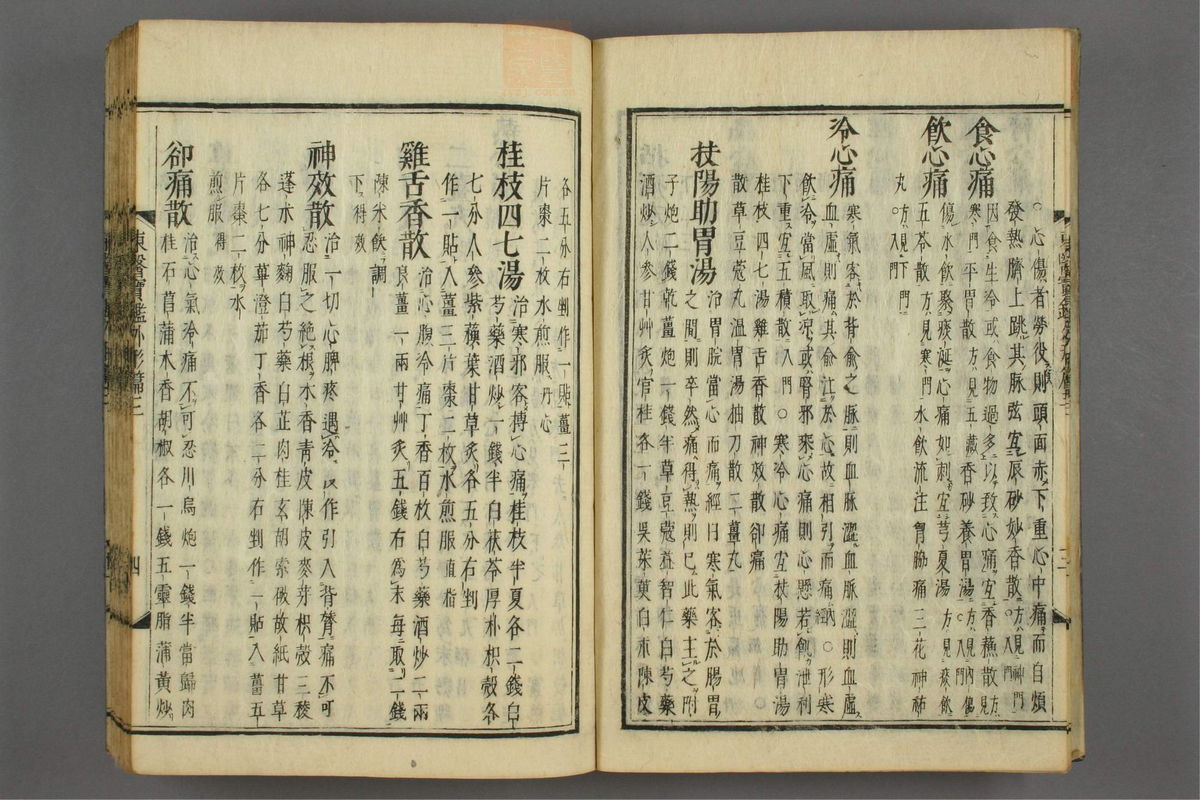 ○心傷者勞役則頭面赤下重心中痛而自煩
發熱臍上跳其脉弦宜辰砂妙香散方見神門○入門
食心痛
因食生冷或食物過多以致心痛宜香蘇散方見
寒門平胃散方見五藏香砂養胃湯方見內傷○入門
飮心痛
傷水飮聚痰涎心痛如刺宜芎夏湯方見痰飮
五苓散方見寒門水飮流注胷膈痛三花神祐
丸方見下門○入門
冷心痛
寒氣客於背俞之脉則血脉澀血脉澀則血虛
血虛則痛其俞注於心故相引而痛內○形寒
飮冷當風取涼或腎邪乘心痛則心懸若飢泄利
下重宜五積散入門○寒冷心痛宜扶陽助胃湯
桂枝四七湯雞舌香散神效散卻痛
散草豆蔲丸溫胃湯抽刀散二薑丸
扶陽助胃湯
治胃脘當心而痛經曰寒氣客於腸胃
之間則卒然痛得熱則已此藥主之附
子炮二錢乾薑炮一錢半草豆蔲益智仁白芍藥
酒炒人參甘艸炙官桂各一錢吳茱萸白朮陳皮
各五分右剉作一貼薑三
片棗二枚水煎服丹心
桂枝四七湯
治寒邪客搏心痛桂枝半夏各二錢白
芍藥酒炒一錢半白茯苓厚朴枳殼各
七分人參紫蘇葉甘草炙各五分右剉
作一貼入薑三片棗二枚水煎服直指
雞舌香散
治心腹冷痛丁香百枚白芍藥酒炒二兩
良薑一兩甘艸炙五錢右爲末每取二錢
陳米飮調
下得效
神效散
治一切心脾疼遇冷以作引入背膂痛不可
忍服之絶根木香靑皮陳皮麥芽枳殼三稜
蓬朮神麴白芍藥白芷肉桂玄胡索破故紙甘草
各七分蓽澄茄丁香各二分右剉作一貼入薑五
片棗二枚水
煎服得效
卻痛散
治心氣冷痛不可忍川烏炮一錢半當歸肉
桂石菖蒲木香胡椒各一錢五靈脂蒲黃炒
東醫寶鑑外形篇三
四